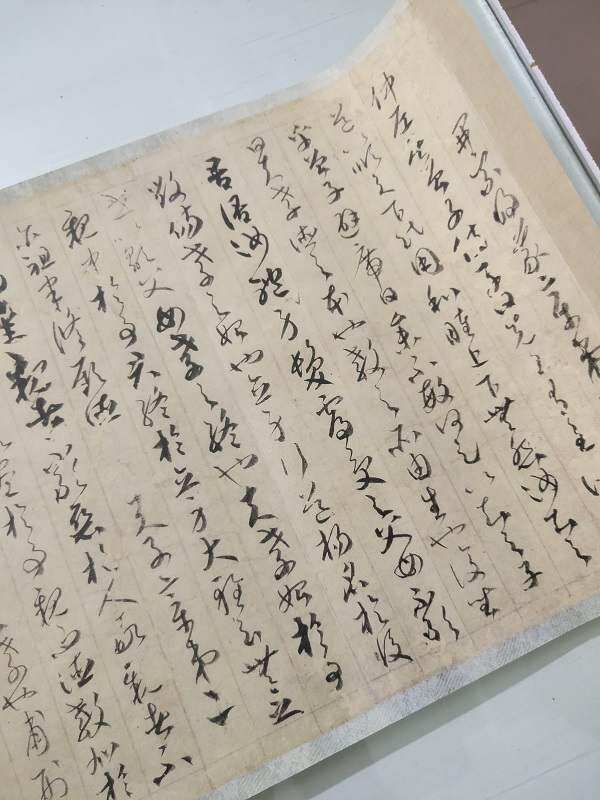 開宗明義章第
仲尼居曾子侍子曰先王有至
道以順天下民用和睦上下無怨汝知之
乎曾子避席曰參不敏何足以知之子
曰夫孝德之本也教之所由生也復坐
吾語汝體身髮膚受之父母不敢
毀傷孝之始也立身行道揚名於後
世以顯父母孝之終也夫孝始於事
親中於事君終於立身大雅云無念
尔祖聿脩厥德 天子章第二
愛親者不敢惡於人敬親者不
盡於事親而德教加於
孝也甫刑